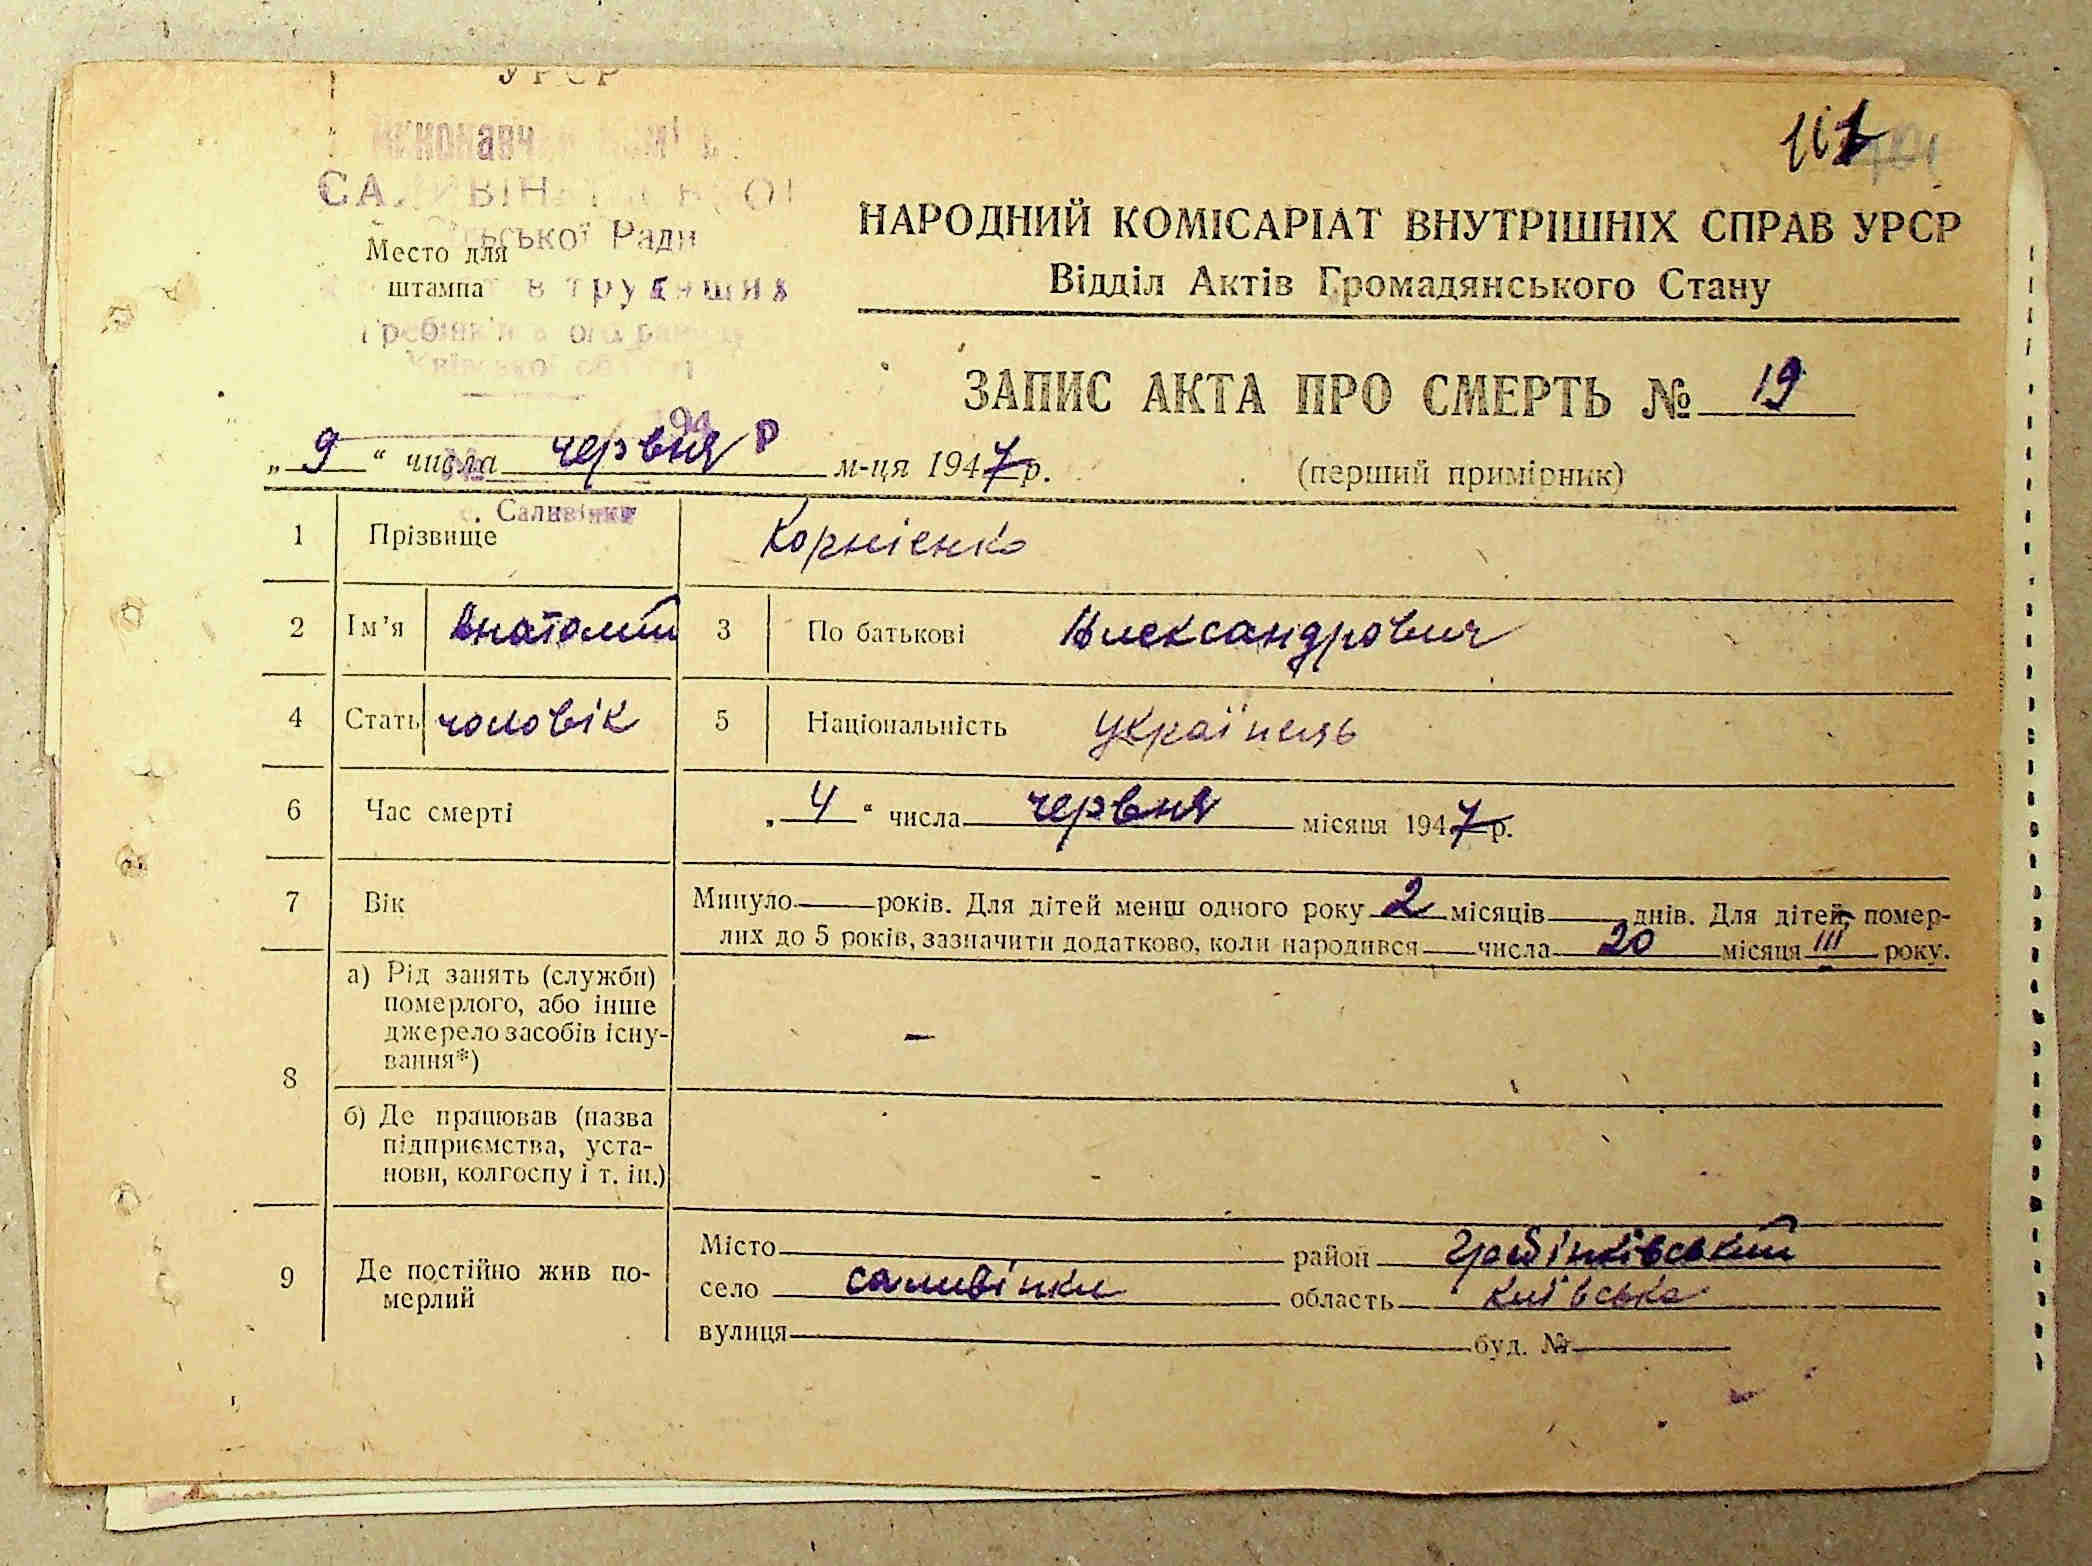 УРСР
САЛИВІН
сільської Ради
Место для
штампа
в трудящих
111
НАРОДНИЙ КОМІСАРІАТ ВНУТРІШНІХ СПРАВ УРСР
Відділ Актів Громадянського Стану
ЗАПИС АКТА ПРО СМЕРТЬ № 19
„ 9 “ числа червня м-ця 1947 р.
(перший примірник)
с. Саливінки
1 Прізвище Корнієнко
2 Ім’я Анатолий 3 По батькові Александрович
4 Стать чоловік 5 Національність українець
6 Час смерті „ 4 “ числа червня місяця 1947 р.
7 Вік Минуло — років. Для дітей менш одного року 2 місяців — днів. Для дітей, помер-
лих до 5 років, зазначити додатково, коли народився — числа 20 місяця III року.
8 а) Рід занять (служби)
померлого, або інше
джерело засобів існу-
вання*) —
б) Де працював (назва
підприємства, уста-
нови, колгоспу і т. ін.)
9 Де постійно жив по-
мерлий
Місто район Гребінківський
село саливінки область київська
вулиця буд. №